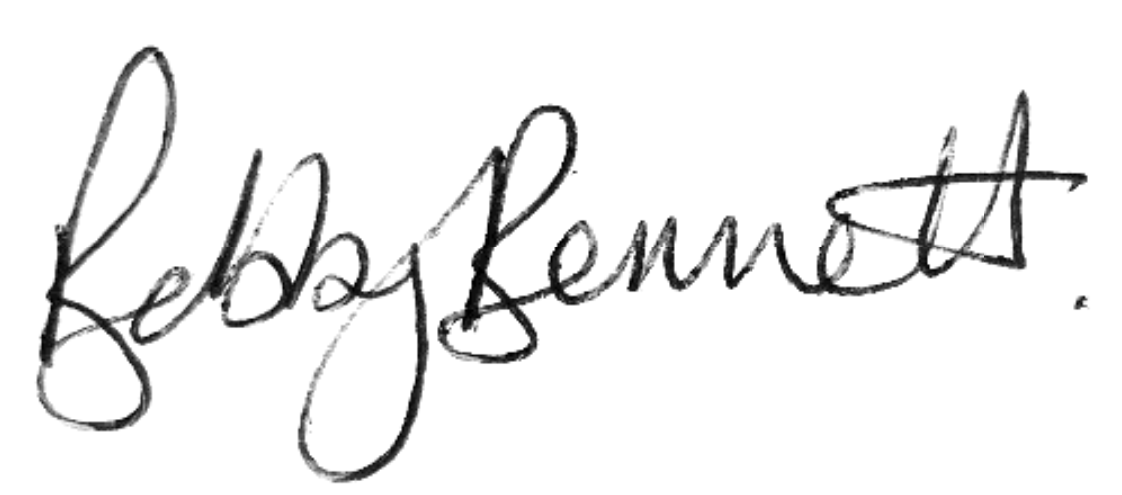 Bobby Bennett.